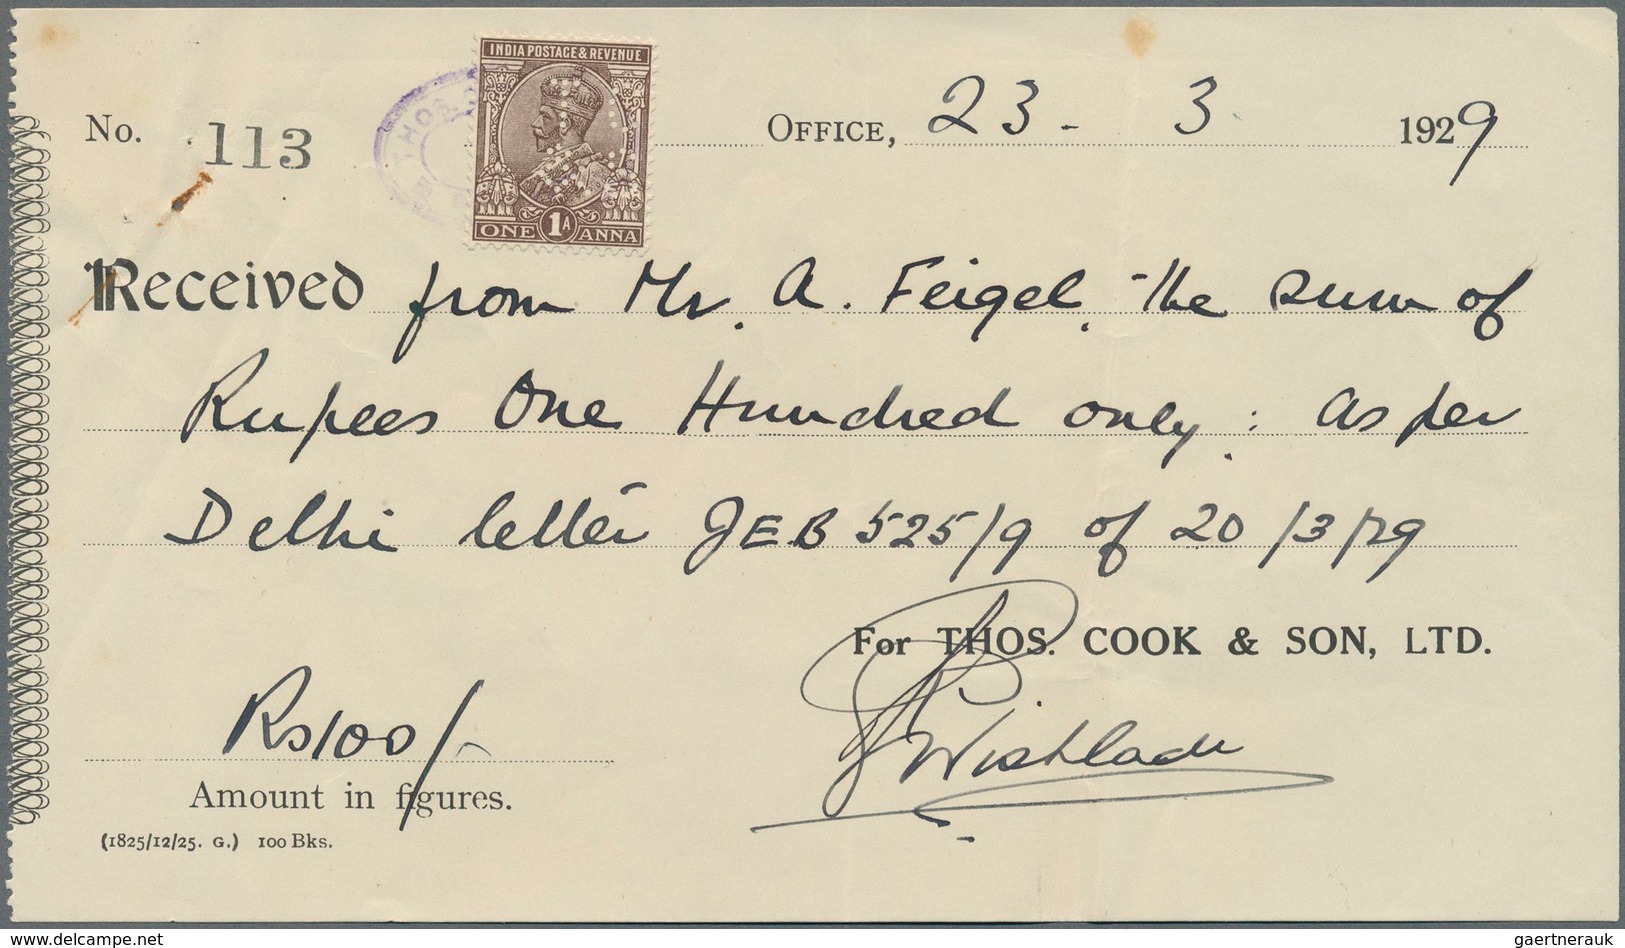 INDIA POSTAGE & REVENUE
ONE 1A ANNA
THOS.
No. 113 OFFICE, 23 - 3 1929
Received from Mr. A. Feigel, the sum of
Rupees One Hundred only: as per
Delhi letter JEB 525/9 of 20/3/29
For THOS. COOK & SON, LTD.
Rs100/-
Amount in figures.
(1825/12/25. G.) 100 Bks.
www.delcampe.net
gaertnerauk